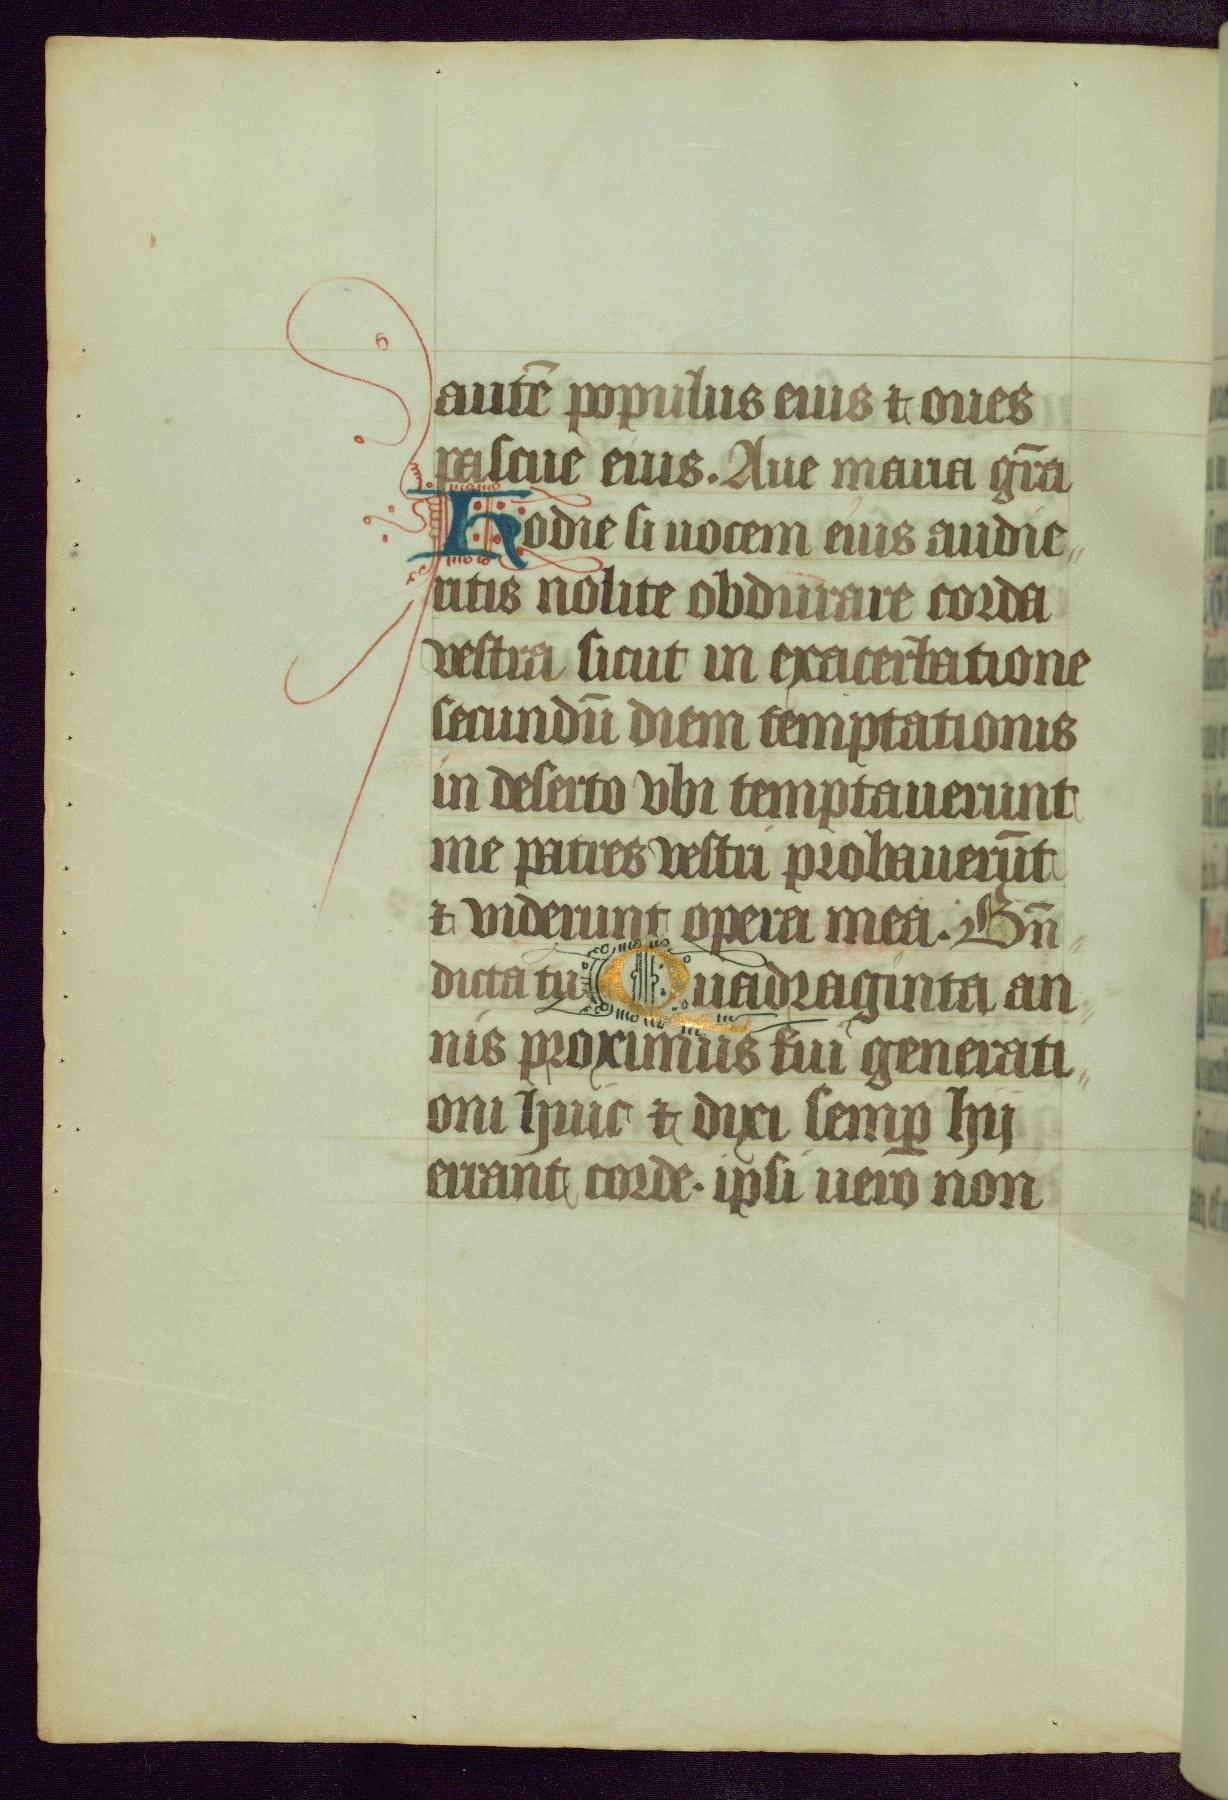 autē populus eius ⁊ oues
pascue eius. Aue maria gr̄a
Hodie si uocem eius audie„
ritis nolite obdurare corda
vestra sicut in exacerbatione
secundū diem temptationis
in deserto vbi temptauerunt
me patres vestri probauerūt
⁊ viderunt opera mea. Bn̄„
dicta tu Quadraginta an„
nis proximus fui generati„
oni huic ⁊ dixi semp̄ hij
errant corde. ipsi uero non